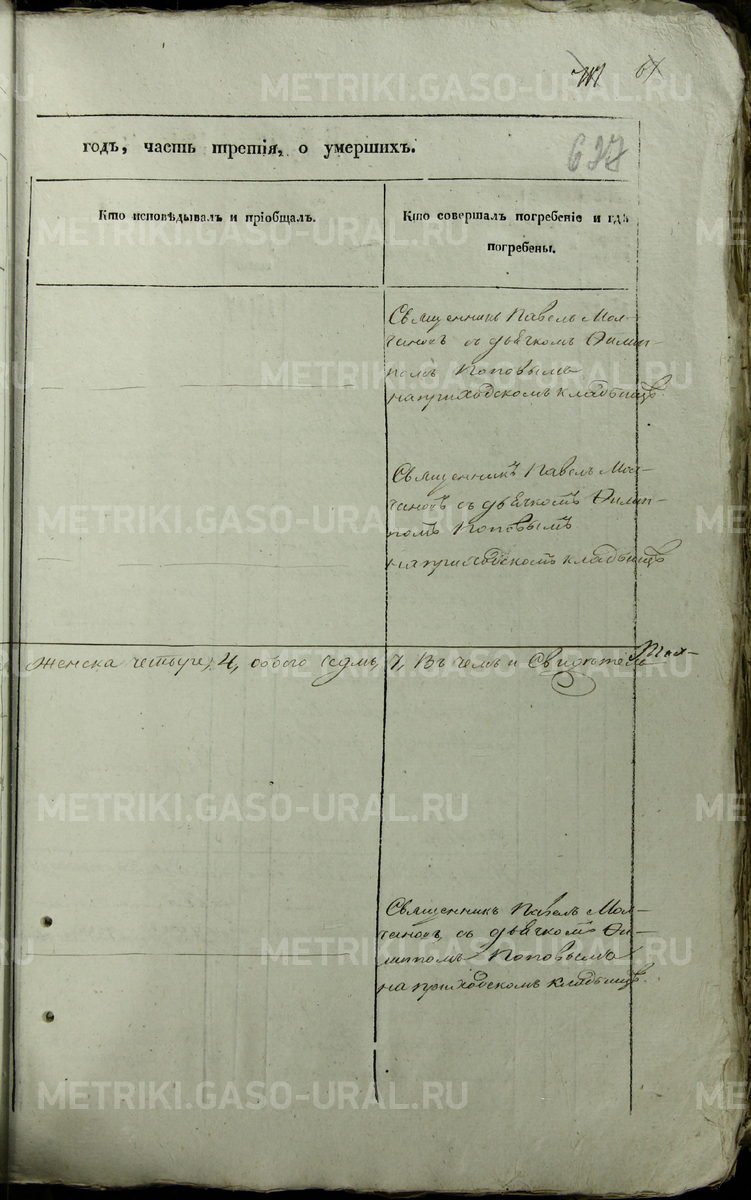 METRIKI.GASO-URAL.RU
61
637
годъ, часть третія, о умершихъ.
Кто исповѣдывалъ и пріобщалъ.
Кто совершалъ погребеніе и гдѣ
погребены.
Священникъ Павелъ Мол-
чановъ съ дьячкомъ Филип-
помъ Поповымъ
на приходскомъ кладбищѣ
Священникъ Павелъ Мол-
чановъ съ дьячкомъ Филип-
помъ Поповымъ
на приходскомъ кладбищѣ
женска четыре, 4, обоего седмь, 7, Въ чемъ и Свидѣтель-
Священникъ Павелъ Мол-
чановъ, съ дьячкомъ Фи-
липпомъ Поповымъ
на приходскомъ кладбищѣ.